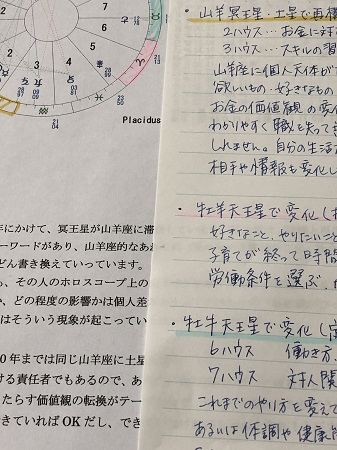 Placidus
・山羊冥王星・土星で再構
2ハウス…お金に対す
3ハウス…スキルの習
山羊座に個人天体が
欲しいもの・好きなもの
お金の価値観の変化
わかりやすく職を失っても
しれません。自分の生活
相手や情報も変化し
・牡羊天王星で変化(
好きなこと、やりたいこと
子育てが終って時間
労働条件を選ぶ、
・牡牛天王星で変化(
6ハウス 働き方、
7ハウス 対人関
これまでのやり方を変えて
あるいは体調や健康
年にかけて、冥王星が山羊座に滞
ーワードがあり、山羊座的なあ
どん書き換えていっています。
も、その人のホロスコープ上の
か、どの程度の影響かは個人差
はそういう現象が起こってい
0年までは同じ山羊座に土星
ける責任者でもあるので、あ
たらす価値観の転換がテー
きていればOKだし、でき